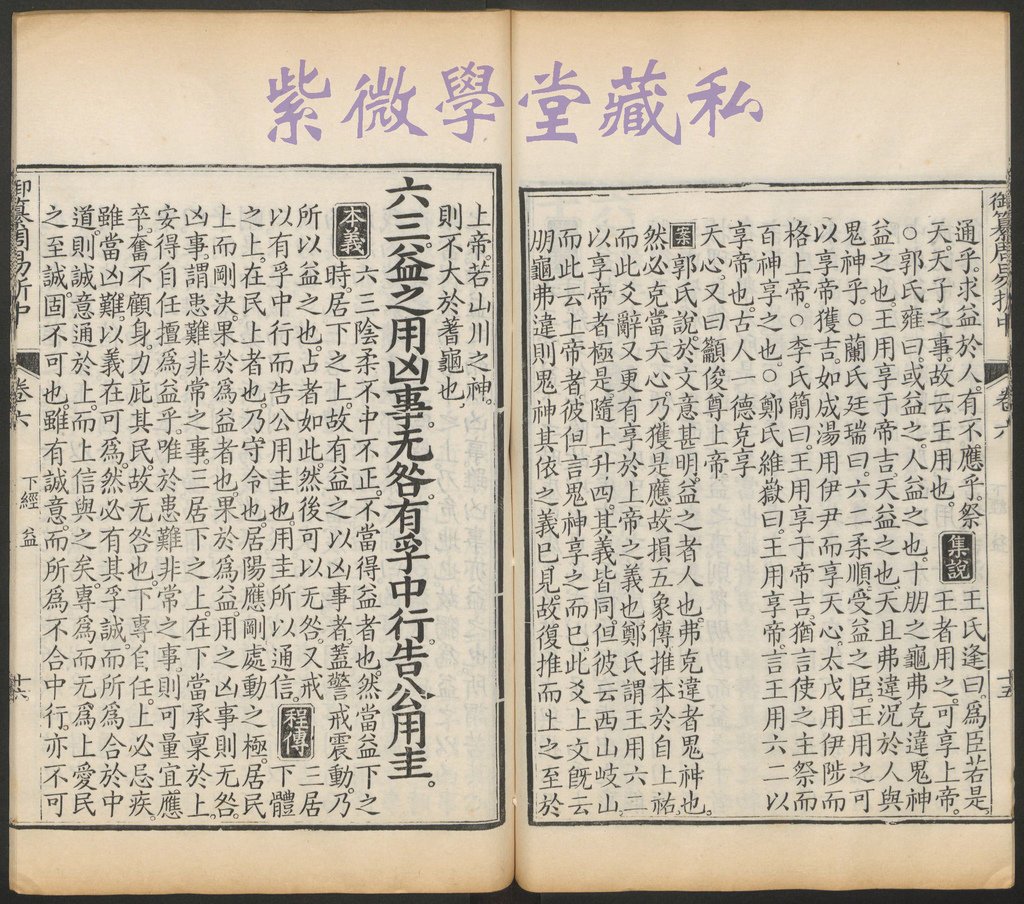 紫微學堂藏私
御纂周易折中 卷六
通乎。求益於人。有不應乎。祭
天。天子之事。故云王用也。
集說
王氏逢曰。爲臣若是。
王者用之。可享上帝。
○郭氏雍曰。或益之。人益之也。十朋之龜弗克違。鬼神
益之也。王用享于帝吉。天益之也。天且弗違。況於人與
鬼神乎。○蘭氏廷瑞曰。六二柔順。受益之臣。王用之可
享帝獲吉。如成湯用伊尹而享天心。太戊用伊陟而
格上帝。○李氏簡曰。王用享于帝吉。猶言使之主祭而
百神享之也。○鄭氏維嶽曰。王用享帝。言王用六二以
享帝也。古人一德克享
天心。又曰。籲俊尊上帝。
案
郭氏說。於文意甚明。益之者人也。弗克違者鬼神也。
然必克當天心。乃獲是應。故損五象傳。推本於自上祐。
而此爻辭。又更有享於上帝之義也。鄭氏謂王用六二
以享帝者極是。隨上升四。其義皆同。但彼云西山岐山。
而此云上帝者。彼但言鬼神享之而已。此爻上文旣云
朋龜弗違。則鬼神其依之義已見。故復推而上之至於
上帝。若山川之神。
則不大於蓍龜也
六三。益之用凶事。无咎。有孚中行。告公用圭。
本義
六三陰柔不中不正。不當得益者也。然當益下之
時。居下之上。故有益之以凶事者。蓋警戒震動。乃
所以益之也。占者如此。然後可以无咎。又戒
以有孚中行而告公用圭也。用圭所以通信。
程傳
三居
下體
之上。在民上者也。乃守令也。居陽應剛。處動之極。居民
上而剛決。果於爲益者也。果於爲益。用之凶事則无咎。
凶事。謂患難非常之事。三居下之上。在下當承稟於上。
安得自任擅爲益乎。唯於患難非常之事。則可量宜應
卒。奮不顧身。力庇其民。故无咎也。下專自任。上必忌疾。
雖當凶難。以義在可爲。然必有其孚誠。而所爲合於中
道。則誠意通於上。而上信與之矣。專爲而无爲上愛民
之至誠。固不可也。雖有誠意。而所爲不合中行。亦不可
御纂周易折中 卷六 下經 益